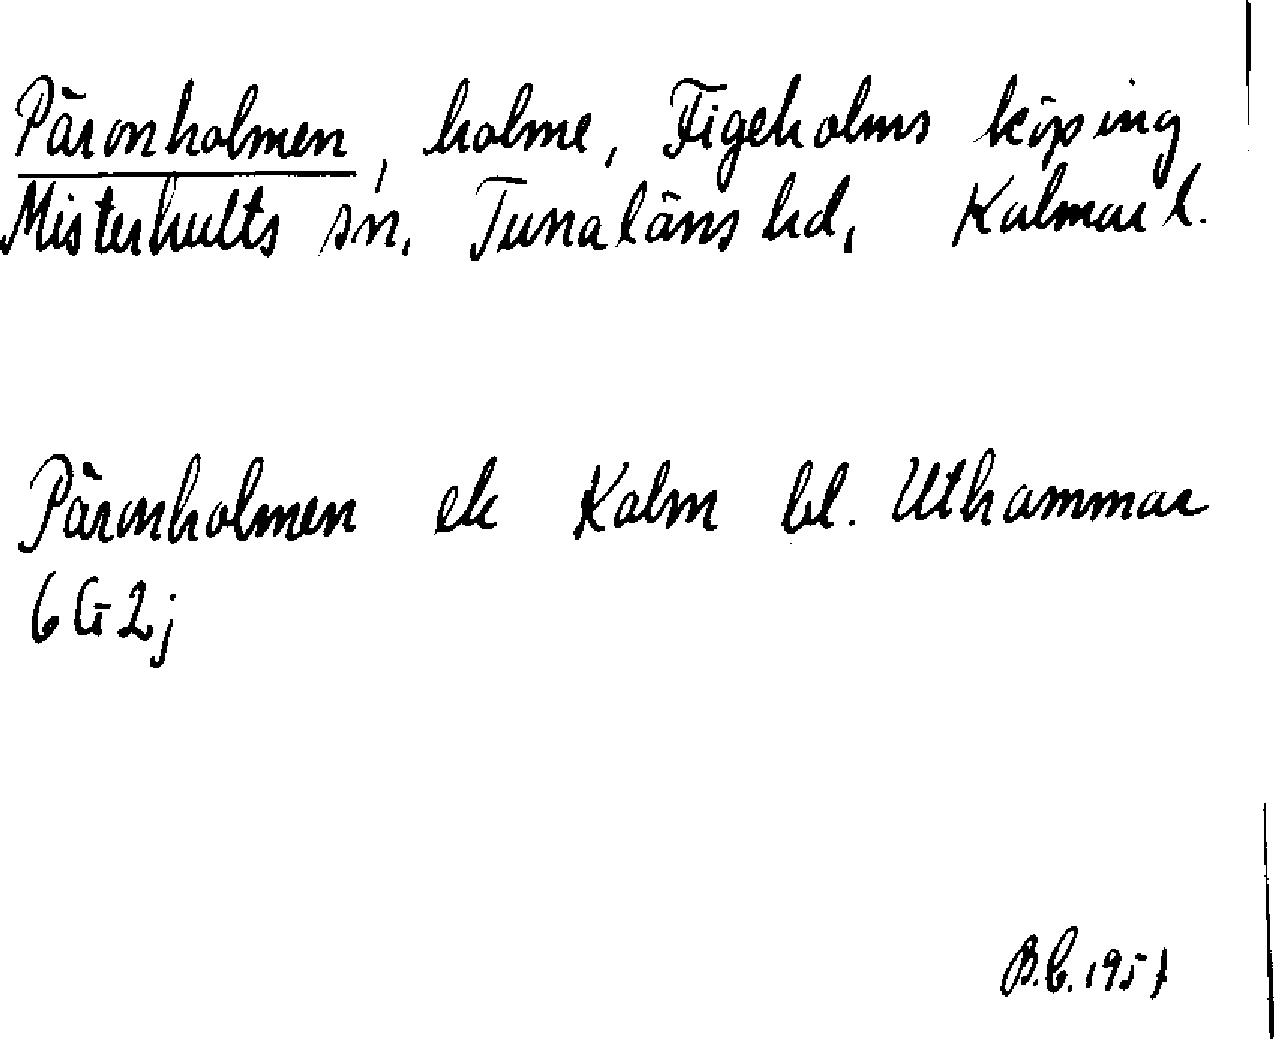 Päronholmen, holme, Figeholms köping
Misterhults sn, Tunaläns hd, Kalmar l.
Päronholmen ek Kalm bl. Uthammar
6G2j
B.C. 1957